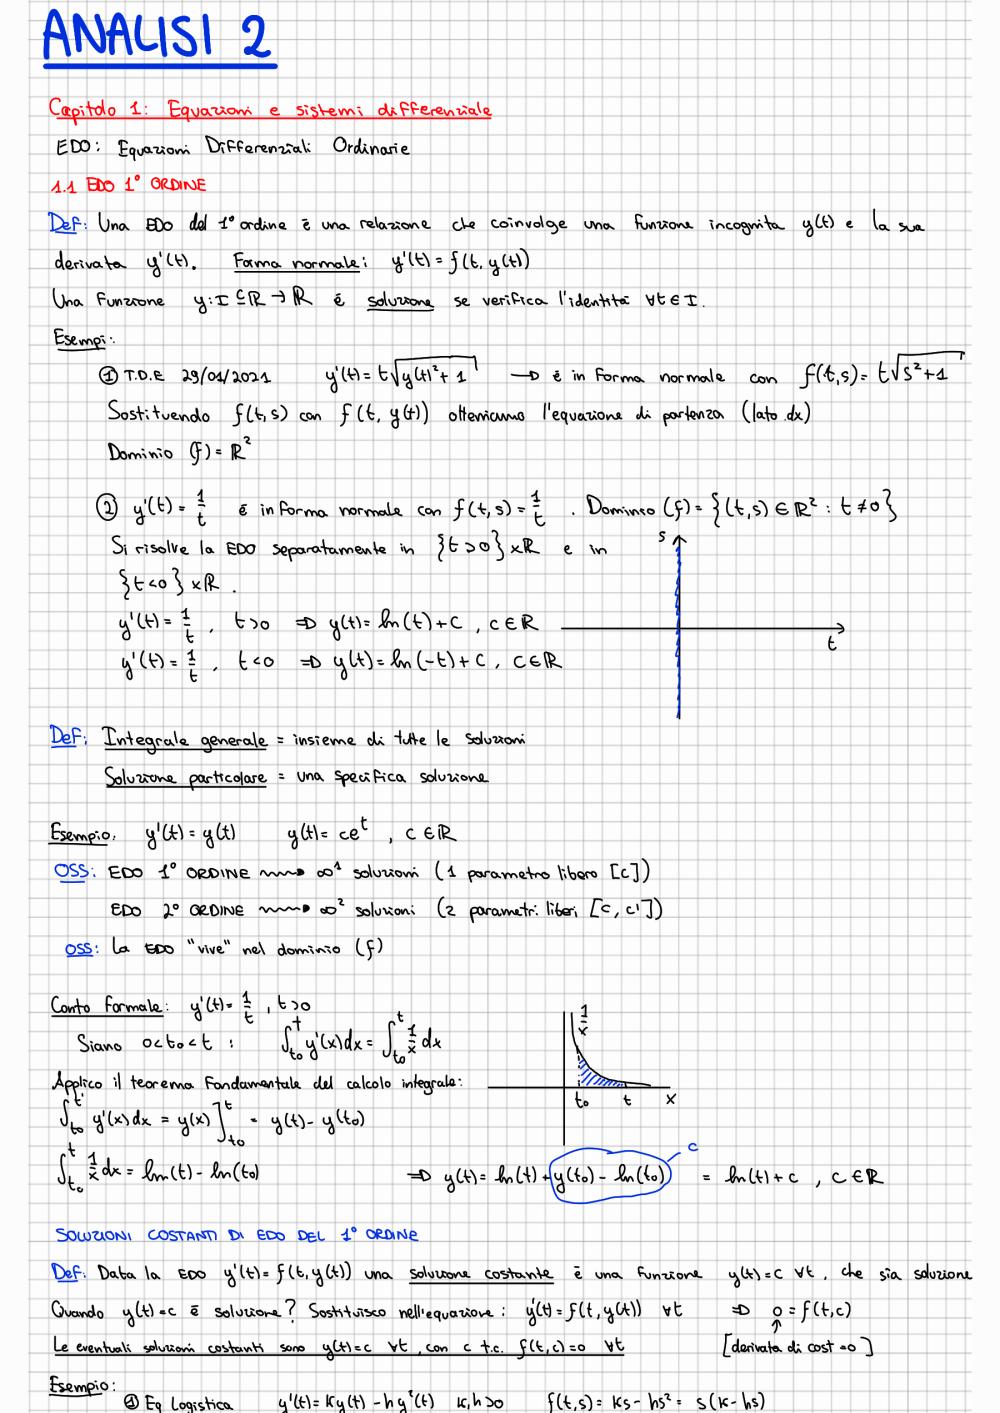 ANALISI 2
Capitolo 1: Equazioni e sistemi differenziale
EDO: Equazioni Differenziali Ordinarie
1.1 EDO 1° ORDINE
Def: Una EDO del 1° ordine è una relazione che coinvolge una funzione incognita y(t) e la sua
derivata y'(t). Forma normale: y'(t) = f(t, y(t))
Una Funzione y: I ⊆ ℝ → ℝ é soluzione se verifica l'identità ∀t ∈ I.
Esempi:
① T.D.E 29/01/2021 y'(t) = t√(y(t)²+1) → é in forma normale con f(t,s) = t√(s²+1)
Sostituendo f(t,s) con f(t, y(t)) otteniamo l'equazione di partenza (lato dx)
Dominio (f) = ℝ²
② y'(t) = 1/t é in forma normale con f(t,s) = 1/t. Dominio (f) = {(t,s) ∈ ℝ² : t ≠ 0}
Si risolve la EDO separatamente in {t>0} x ℝ e in
{t<0} x ℝ.
y'(t) = 1/t, t>0 ⇒ y(t) = ln(t)+C, C∈ℝ
y'(t) = 1/t, t<0 ⇒ y(t) = ln(-t)+C, C∈ℝ
s
t
Def: Integrale generale = insieme di tutte le soluzioni
Soluzione particolare = una specifica soluzione
Esempio: y'(t) = y(t) y(t) = ce^t, C∈ℝ
OSS: EDO 1° ORDINE ⇝ ∞¹ soluzioni (1 parametro libero [c])
EDO 2° ORDINE ⇝ ∞² soluzioni (2 parametri liberi [c, c'])
OSS: La EDO "vive" nel dominio (f)
Conto formale: y'(t) = 1/t, t>0
Siano 0<t₀<t : ∫_{t₀}^{t} y'(x)dx = ∫_{t₀}^{t} 1/x dx
1/x
t₀ t x
Applico il teorema fondamentale del calcolo integrale:
∫_{t₀}^{t} y'(x)dx = y(x)]_{t₀}^{t} = y(t) - y(t₀)
∫_{t₀}^{t} 1/x dx = ln(t) - ln(t₀) ⇒ y(t) = ln(t) + y(t₀) - ln(t₀) = ln(t)+c, C∈ℝ
c
SOLUZIONI COSTANTI DI EDO DEL 1° ORDINE
Def: Data la EDO y'(t) = f(t, y(t)) una soluzione costante è una funzione y(t) = c ∀t, che sia soluzione
Quando y(t) = c è soluzione? Sostituisco nell'equazione: y'(t) = f(t, y(t)) ∀t ⇒ 0 = f(t,c)
Le eventuali soluzioni costanti sono y(t)=c ∀t, con c t.c. f(t,c)=0 ∀t [derivata di cost = 0]
Esempio:
① Eq Logistica y'(t) = Ky(t) - hy²(t) K,h>0 f(t,s) = Ks - hs² = s(K-hs)